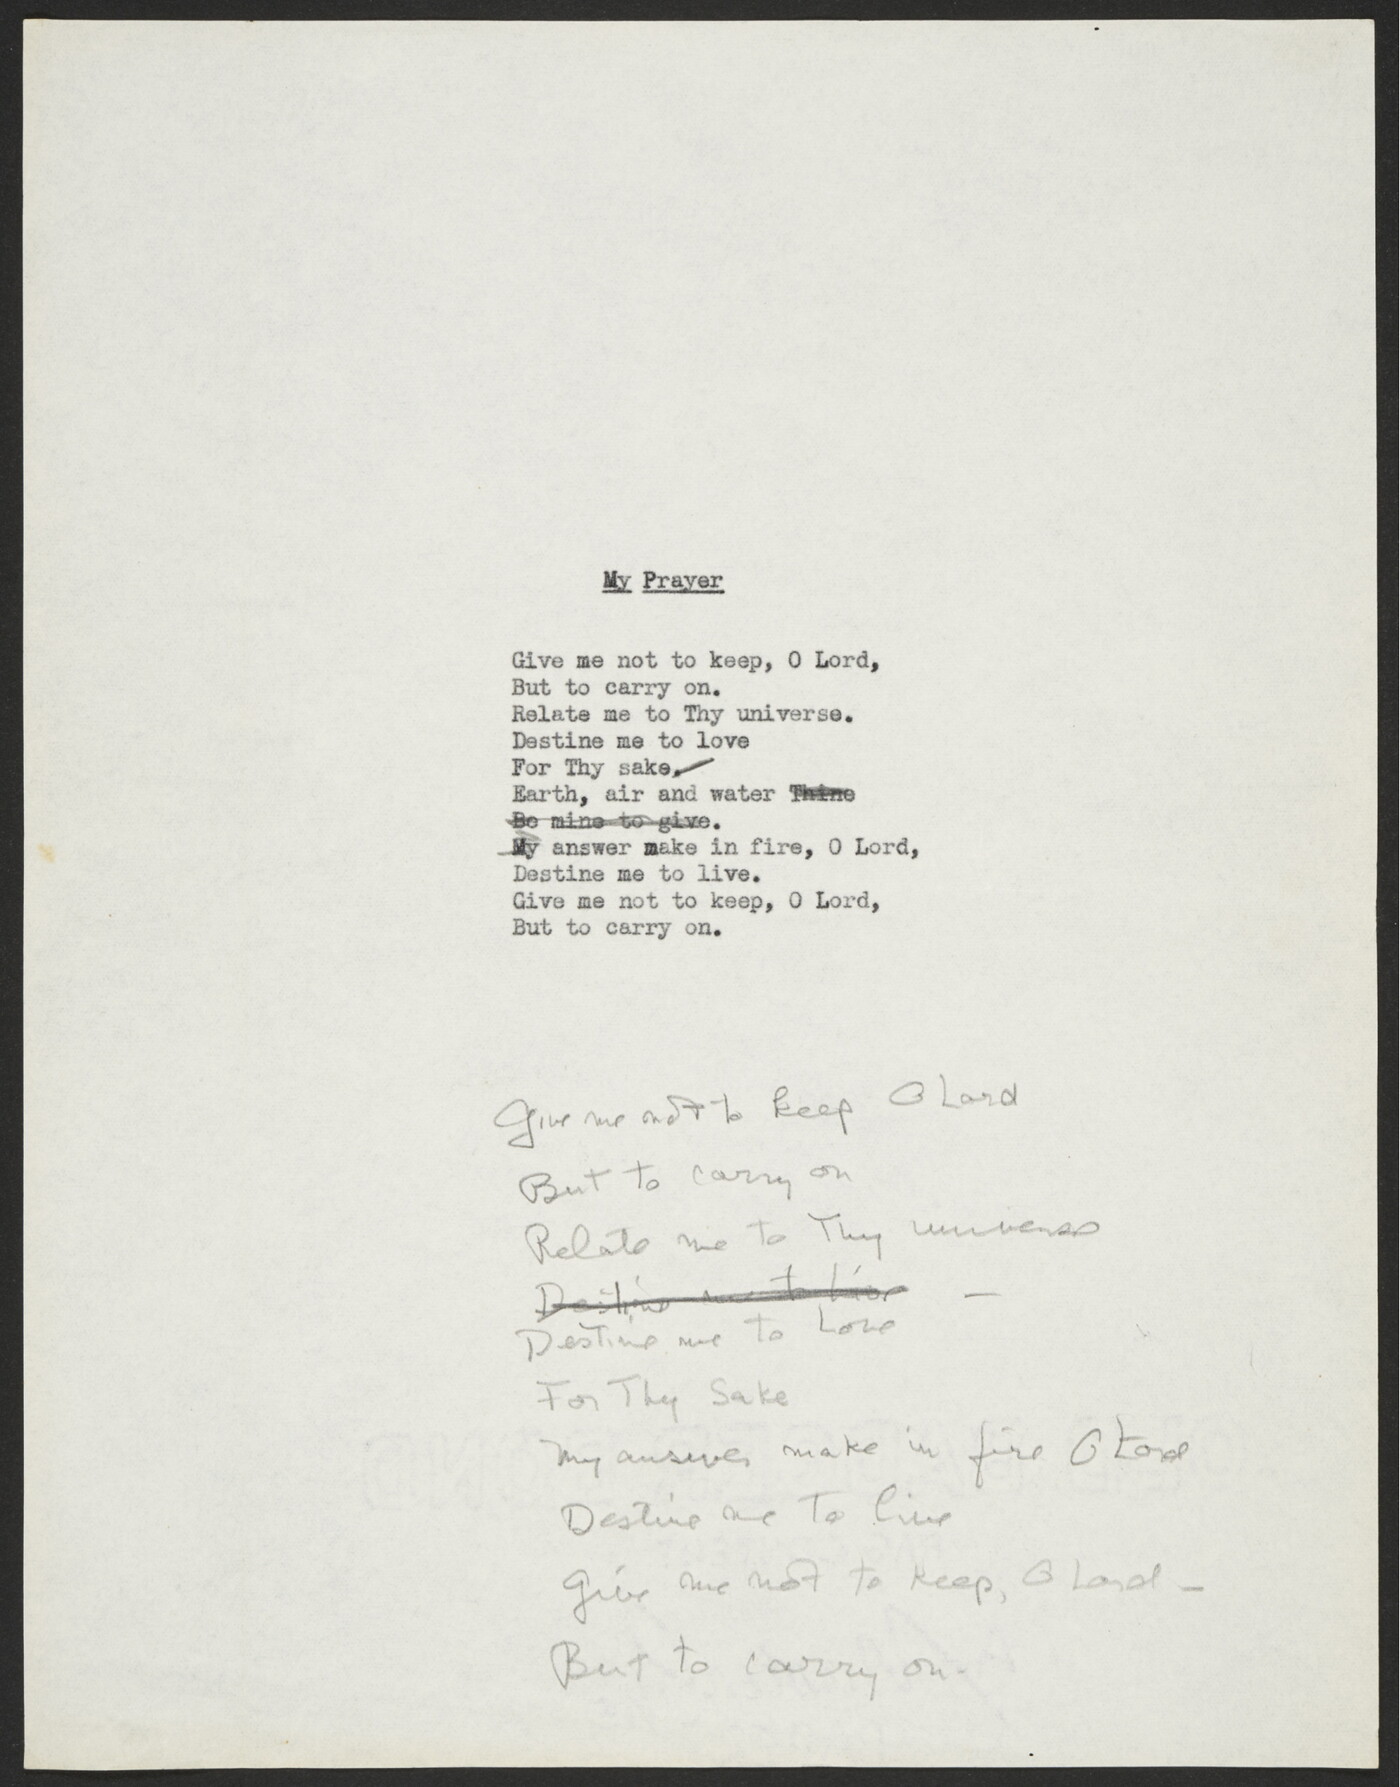 My Prayer
Give me not to keep, O Lord,
But to carry on.
Relate me to Thy universe.
Destine me to love
For Thy sake.
Earth, air and water Thine
Be mine to give.
My answer make in fire, O Lord,
Destine me to live.
Give me not to keep, O Lord,
But to carry on.
Give me not to keep O Lord
But to carry on
Relate me to Thy universe
Destine me to live —
Destine me to Love
For Thy Sake
My answer make in fire O Lord
Destine me to live
Give me not to keep, O Lord —
But to carry on.